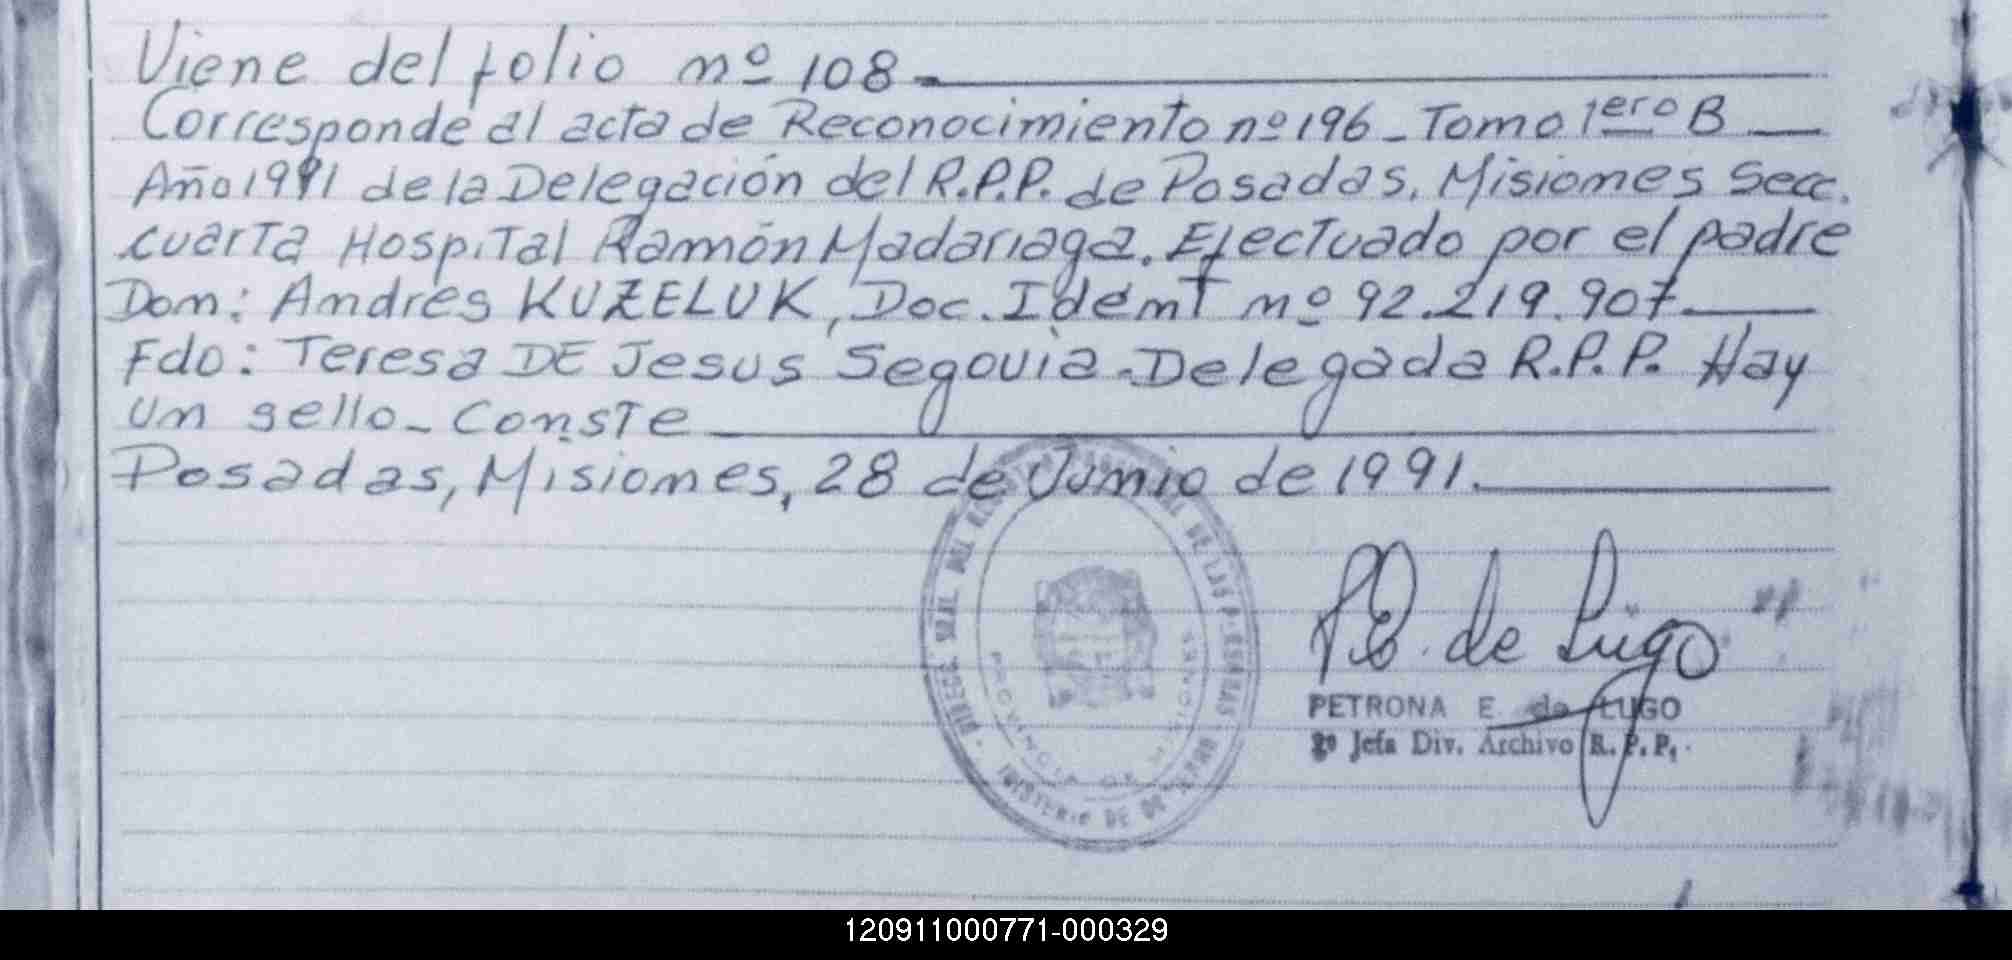 Viene del folio nº 108
Corresponde al acta de Reconocimiento nº 196 - Tomo 1ero B
Año 1991 de la Delegación del R.P.P. de Posadas, Misiones Secc.
cuarta Hospital Ramón Madariaga. Efectuado por el padre
Don: Andrés KUZELUK, Doc. Ident nº 92.219.907
Fdo: Teresa DE Jesus Segovia - Delegada R.P.P. Hay
un sello - Conste
Posadas, Misiones, 28 de Junio de 1991.
PE de Lugo
PETRONA E. de LUGO
Jefa Div. Archivo R.P.P.
PROVINCIA DE MISIONES
120911000771-000329